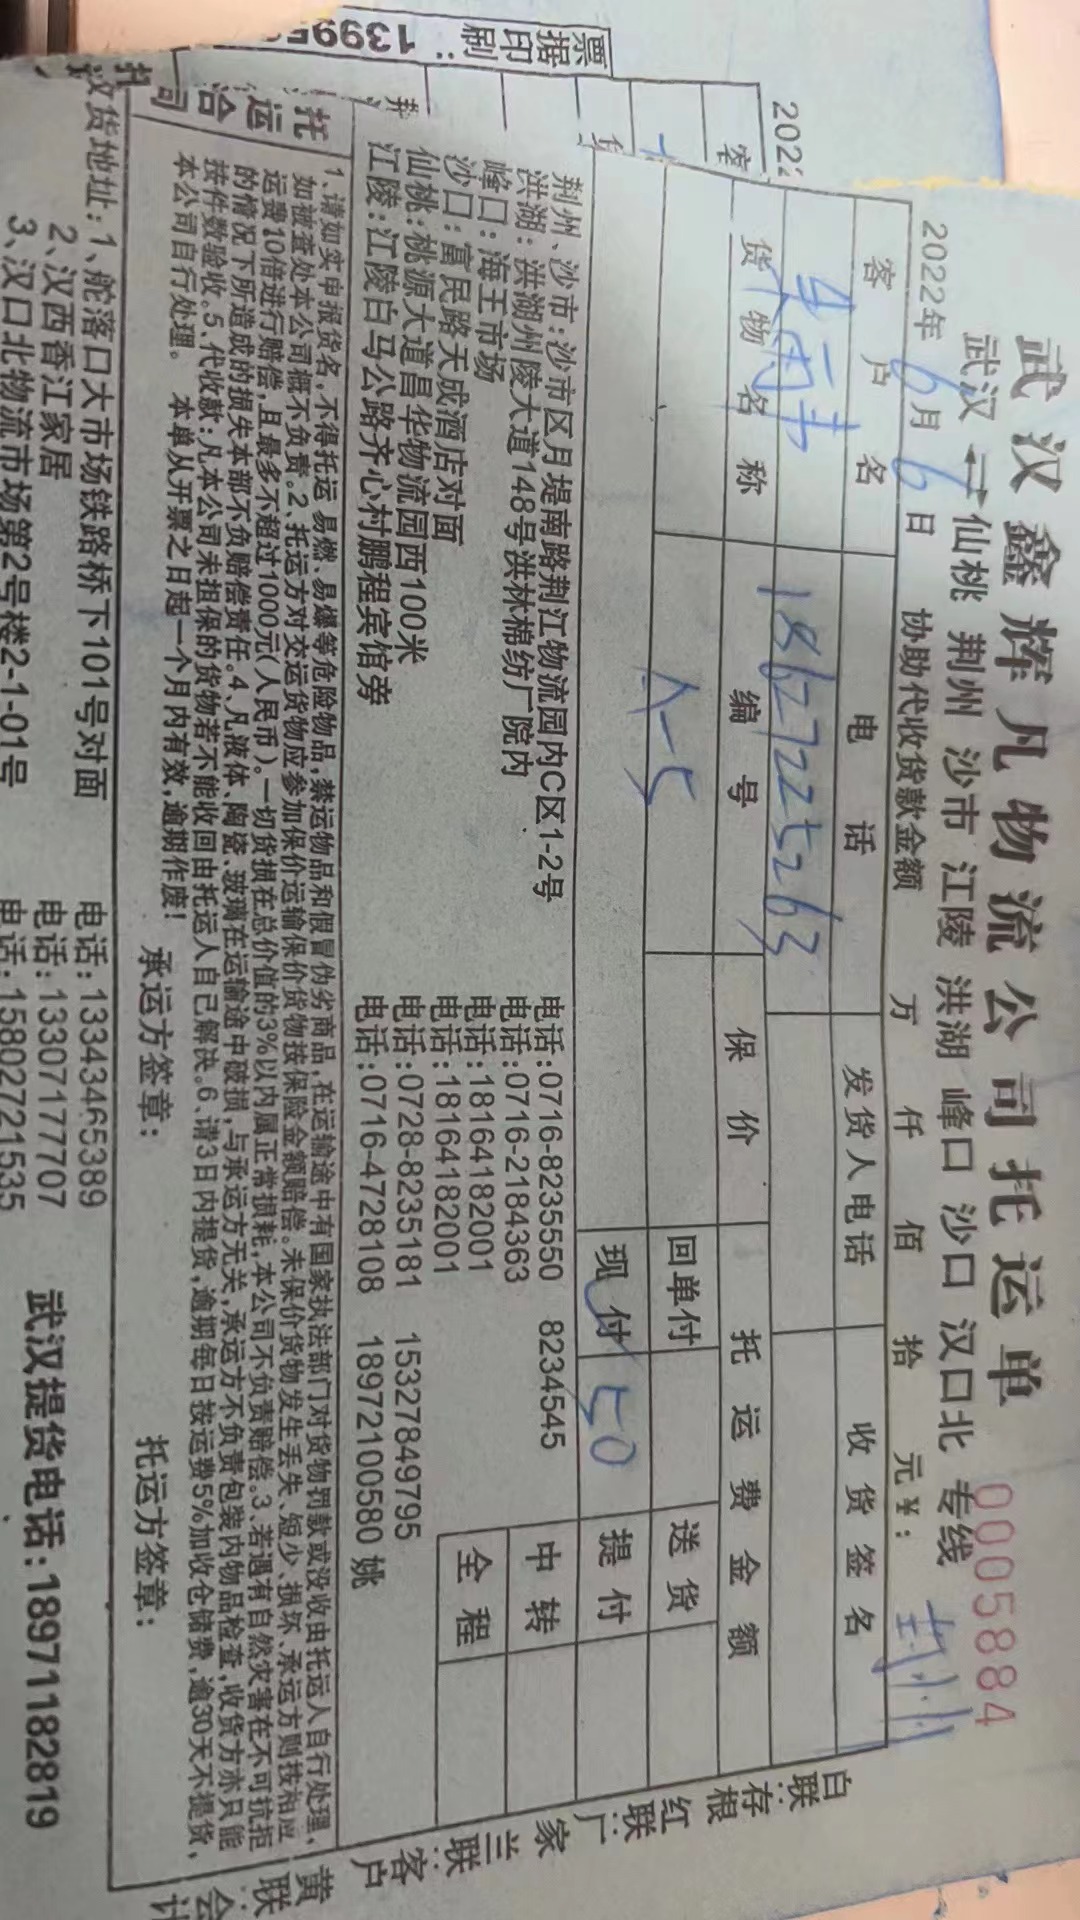 武汉鑫辉凡物流公司托运单
0005884
武汉⇌仙桃 荆州 沙市 江陵 洪湖 峰口 沙口 汉口北 专线
2022年6月6日 协助代收货款金额 万 仟 佰 拾 元¥:
客户名 电话 发货人电话 收货签名
18627225263
货物名称 编号 保价 托运费金额
1-5 回单付 送货
现付 50 提付
中转
全程
荆州、沙市:沙市区月堤南路荆江物流园内C区1-2号 电话:0716-8235550 8234545
洪湖:洪湖州陵大道148号洪林棉纺厂院内 电话:0716-2184363
峰口:海王市场 电话:18164182001
沙口:富民路天成酒店对面 电话:18164182001
仙桃:桃源大道昌华物流园西100米 电话:0728-8235181 15327849795
江陵:江陵白马公路齐心村鹏程宾馆旁 电话:0716-4728108 18972100580 姚
1、请如实申报货名,不得托运易燃、易爆等危险物品,禁运物品和假冒伪劣商品,在运输途中有国家执法部门对货物罚款或没收由托运人自行处理,
如被查处本公司概不负责。2、托运方对交运货物应参加保价运输保价货物按保险金额赔偿。未保价货物发生丢失、短少、损坏、承运方则按相应
运费10倍进行赔偿,且最多不超过1000元(人民币)。一切货损在总价值的3%以内属正常损耗,本公司不负责赔偿。3、若遇有自然灾害在不可抗拒
的情况下所造成的损失本部不负赔偿责任。4、凡液体、陶瓷、玻璃在运输途中破损,与承运方无关,承运方不负责包装内物品检查,收货方亦只能
按件数验收。5、代收款:凡本公司未担保的货物若不能收回由托运人自己解决。6、请3日内提货,逾期每日按运费5%加收仓储费,逾30天不提货,
本公司自行处理。 本单从开票之日起一个月内有效,逾期作废!
承运方签章: 托运方签章:
货地址:1、舵落口大市场铁路桥下101号对面 电话:13343465389
2、汉西香江家居 电话:13307177707
3、汉口北物流市场第2号楼2-1-01号 电话:15802721535
武汉提货电话:18971182819
白联:存根
红联:厂家
兰联:客户
黄联:会计
票据印刷:13995
2022
托运